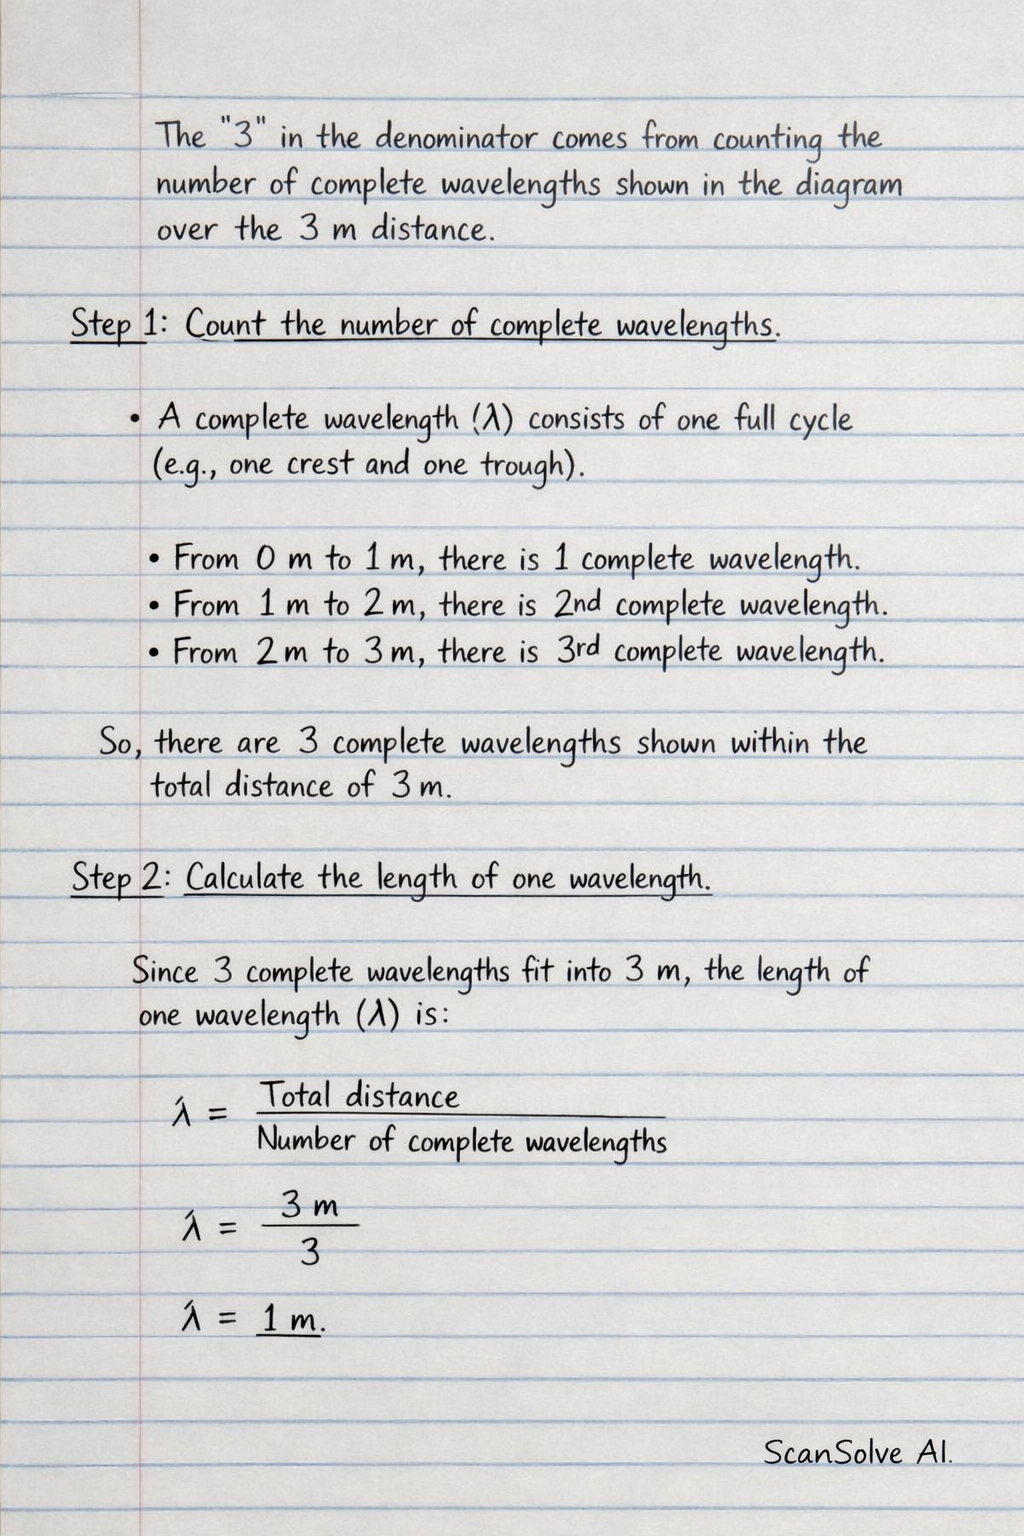 The "3" in the denominator comes from counting the
number of complete wavelengths shown in the diagram
over the 3 m distance.
Step 1: Count the number of complete wavelengths.
• A complete wavelength (λ) consists of one full cycle
(e.g., one crest and one trough).
• From 0 m to 1 m, there is 1 complete wavelength.
• From 1 m to 2 m, there is 2nd complete wavelength.
• From 2 m to 3 m, there is 3rd complete wavelength.
So, there are 3 complete wavelengths shown within the
total distance of 3 m.
Step 2: Calculate the length of one wavelength.
Since 3 complete wavelengths fit into 3 m, the length of
one wavelength (λ) is:
λ = Total distance
Number of complete wavelengths
λ = 3 m
3
λ = 1 m.
ScanSolve AI.